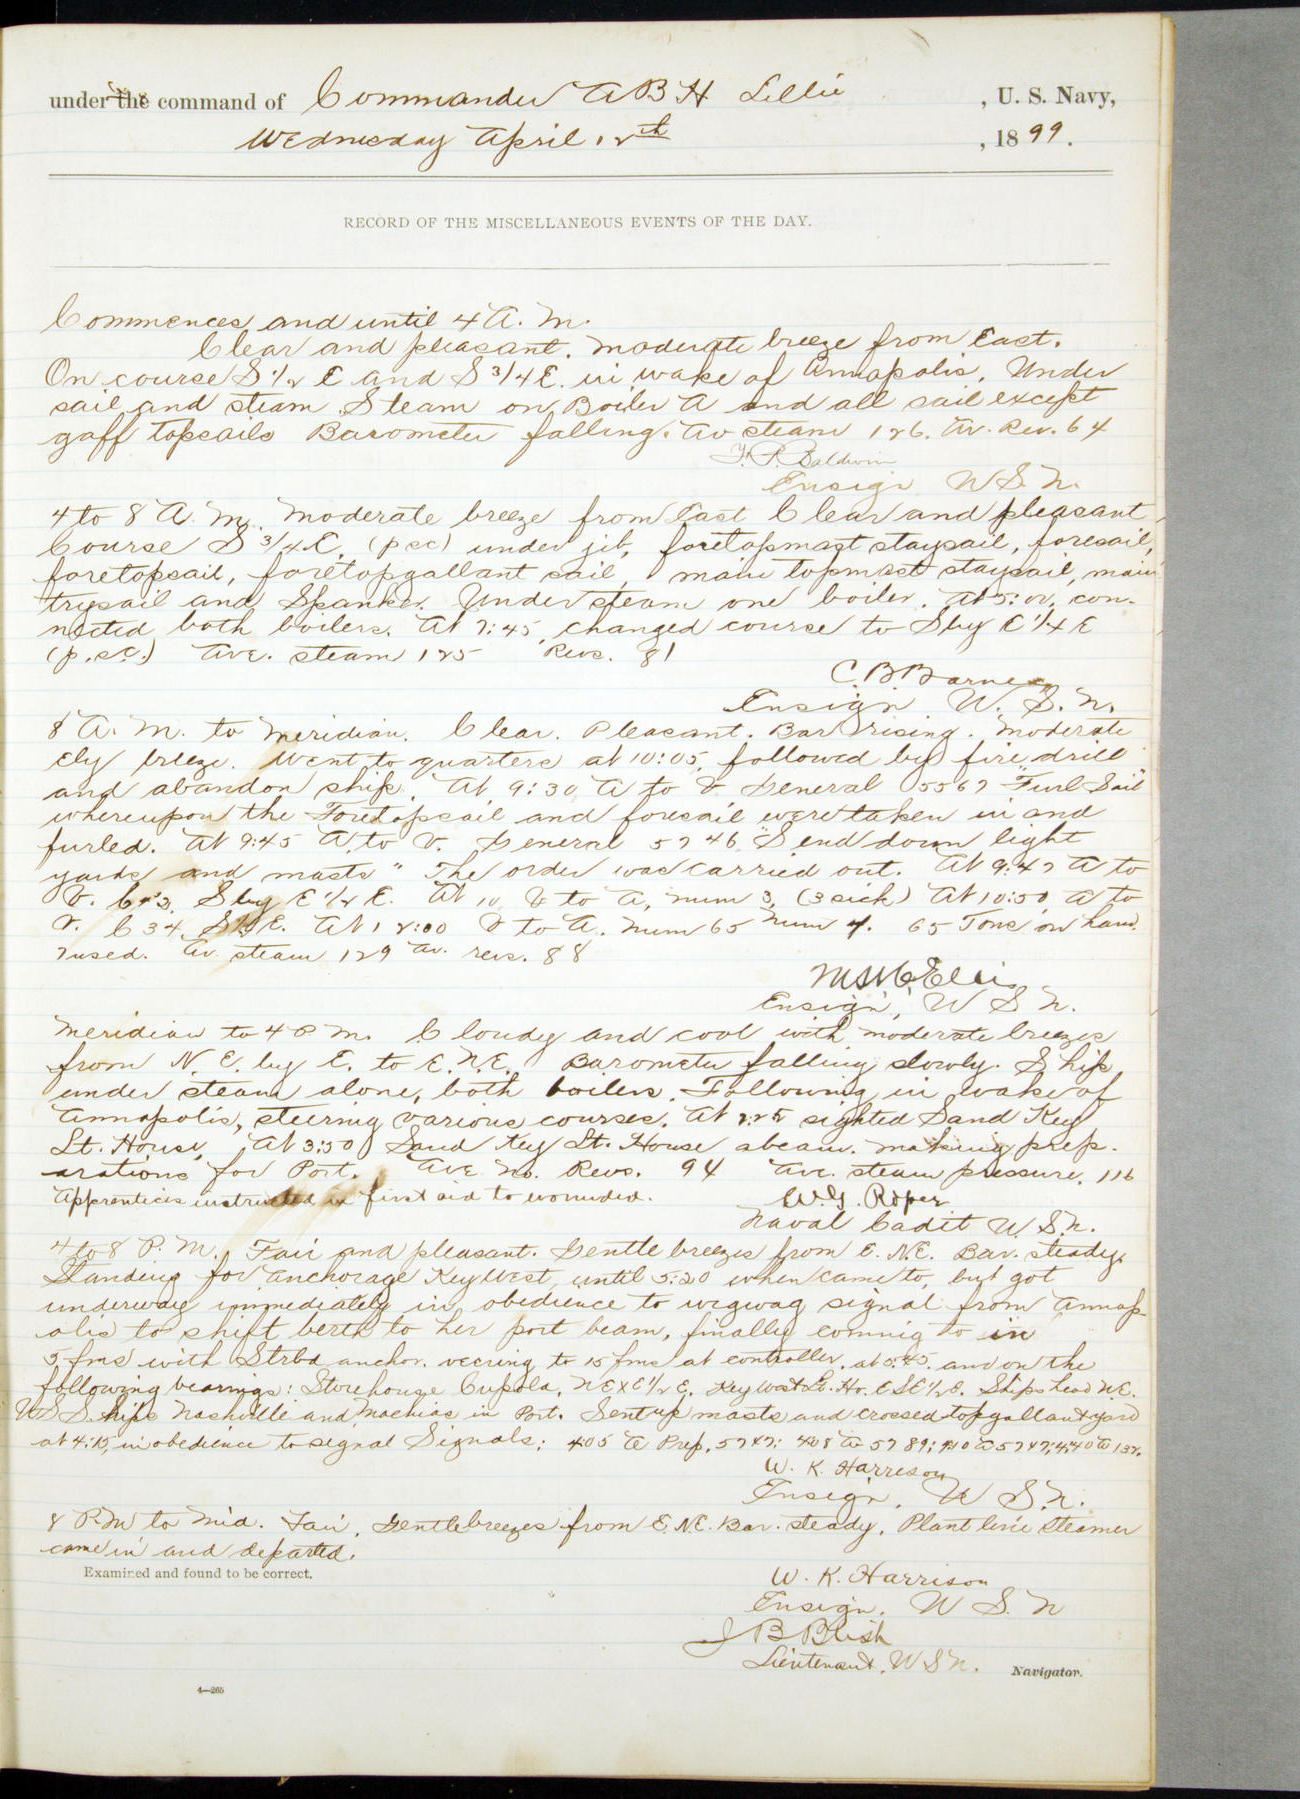 under the command of Commander A B H Lillie, U. S. Navy,
Wednesday April 12th, 1899.
RECORD OF THE MISCELLANEOUS EVENTS OF THE DAY.
Commences and until 4 A. M.
Clear and pleasant. Moderate breeze from East.
On course S 1/2 E and S 3/4 E. in wake of Annapolis. Under
sail and steam. Steam on Boiler A and all sail except
gaff topsails Barometer falling. Av steam 126. Av. Rev. 64
F. P. Baldwin
Ensign U.S.N.
4 to 8 A. M. Moderate breeze from East Clear and pleasant
Course S 3/4 E. (p s c) under jib, foretopmast staysail, foresail,
foretopsail, foretopgallant sail, main topmast staysail, main
trysail and Spanker. Under steam one boiler. At 5:00, con-
nected both boilers. At 7:45, changed course to S by E 1/4 E
(p.s.c.) Ave. steam 125 Revs. 81
C. B Barnes
Ensign U. S. N.
8 A. M. to Meridian. Clear. Pleasant. Bar rising. Moderate
ely breeze. Went to quarters at 10:05, followed by fire drill
and abandon ship. At 9:30 A to V General 5567 "Furl Sail"
whereupon the Foretopsail and foresail were taken in and
furled. At 9:45 A to V. General 5746 "Send down light
yards and masts" The order was carried out. At 9:47 A to
V. S by E 1/2 E. At 10 V to A, num 3, (3 sick) At 10:50 A to
V. C 34, E. At 12:00 V to A. Num 65 Num 7. 65 Tons on hand
7 used. Av. steam 129 av. revs. 88
M Ellis
Ensign, U S N.
Meridian to 4 P. M. Cloudy and cool with moderate breezes
from N. E. by E. to E. N. E. Barometer falling slowly. Ship
under steam alone, both boilers. Following in wake of
Annapolis, steering various courses. At 2:25 sighted Sand Key
Lt. House. At 3:50 Sand Key Lt. House abeam. Making prep-
arations for Port. Ave No. Revs. 94 Ave. steam pressure, 116
Apprentices instructed in first aid to wounded.
W. G. Roper
Naval Cadet U. S. N.
4 to 8 P. M. Fair and pleasant. Gentle breezes from E. N. E. Bar. steady.
Standing for anchorage Key West, until 5:20 when came to, but got
underway immediately in obedience to wigwag signal from Annap-
olis to shift berth to her port beam, finally coming to in
5 fms with Strbd anchor. veering to 15 fms at controller. at 5:45. and on the
following bearings: Storehouse Cupola, NExE 1/2 E. Key West Lt. Ho. ESE 1/2 E. Ships head NE.
U.S.S. Ships Nashville and Machias in Port. Sent up masts and crossed topgallant yard
at 4:15, in obedience to signal Signals: 4:05 A Prep. 5747: 4:08 A 5789; 4:10 A 5747; 4:40 A 132.
W. K. Harrison
Ensign, U. S. N.
8 P. M to Mid. Fair. Gentle breezes from E. N. E. Bar. steady. Plant line steamer
came in and departed.
Examined and found to be correct.
W. K. Harrison
Ensign. U S. N
J B Blish
Lieutenant, U S N. Navigator.
4—265